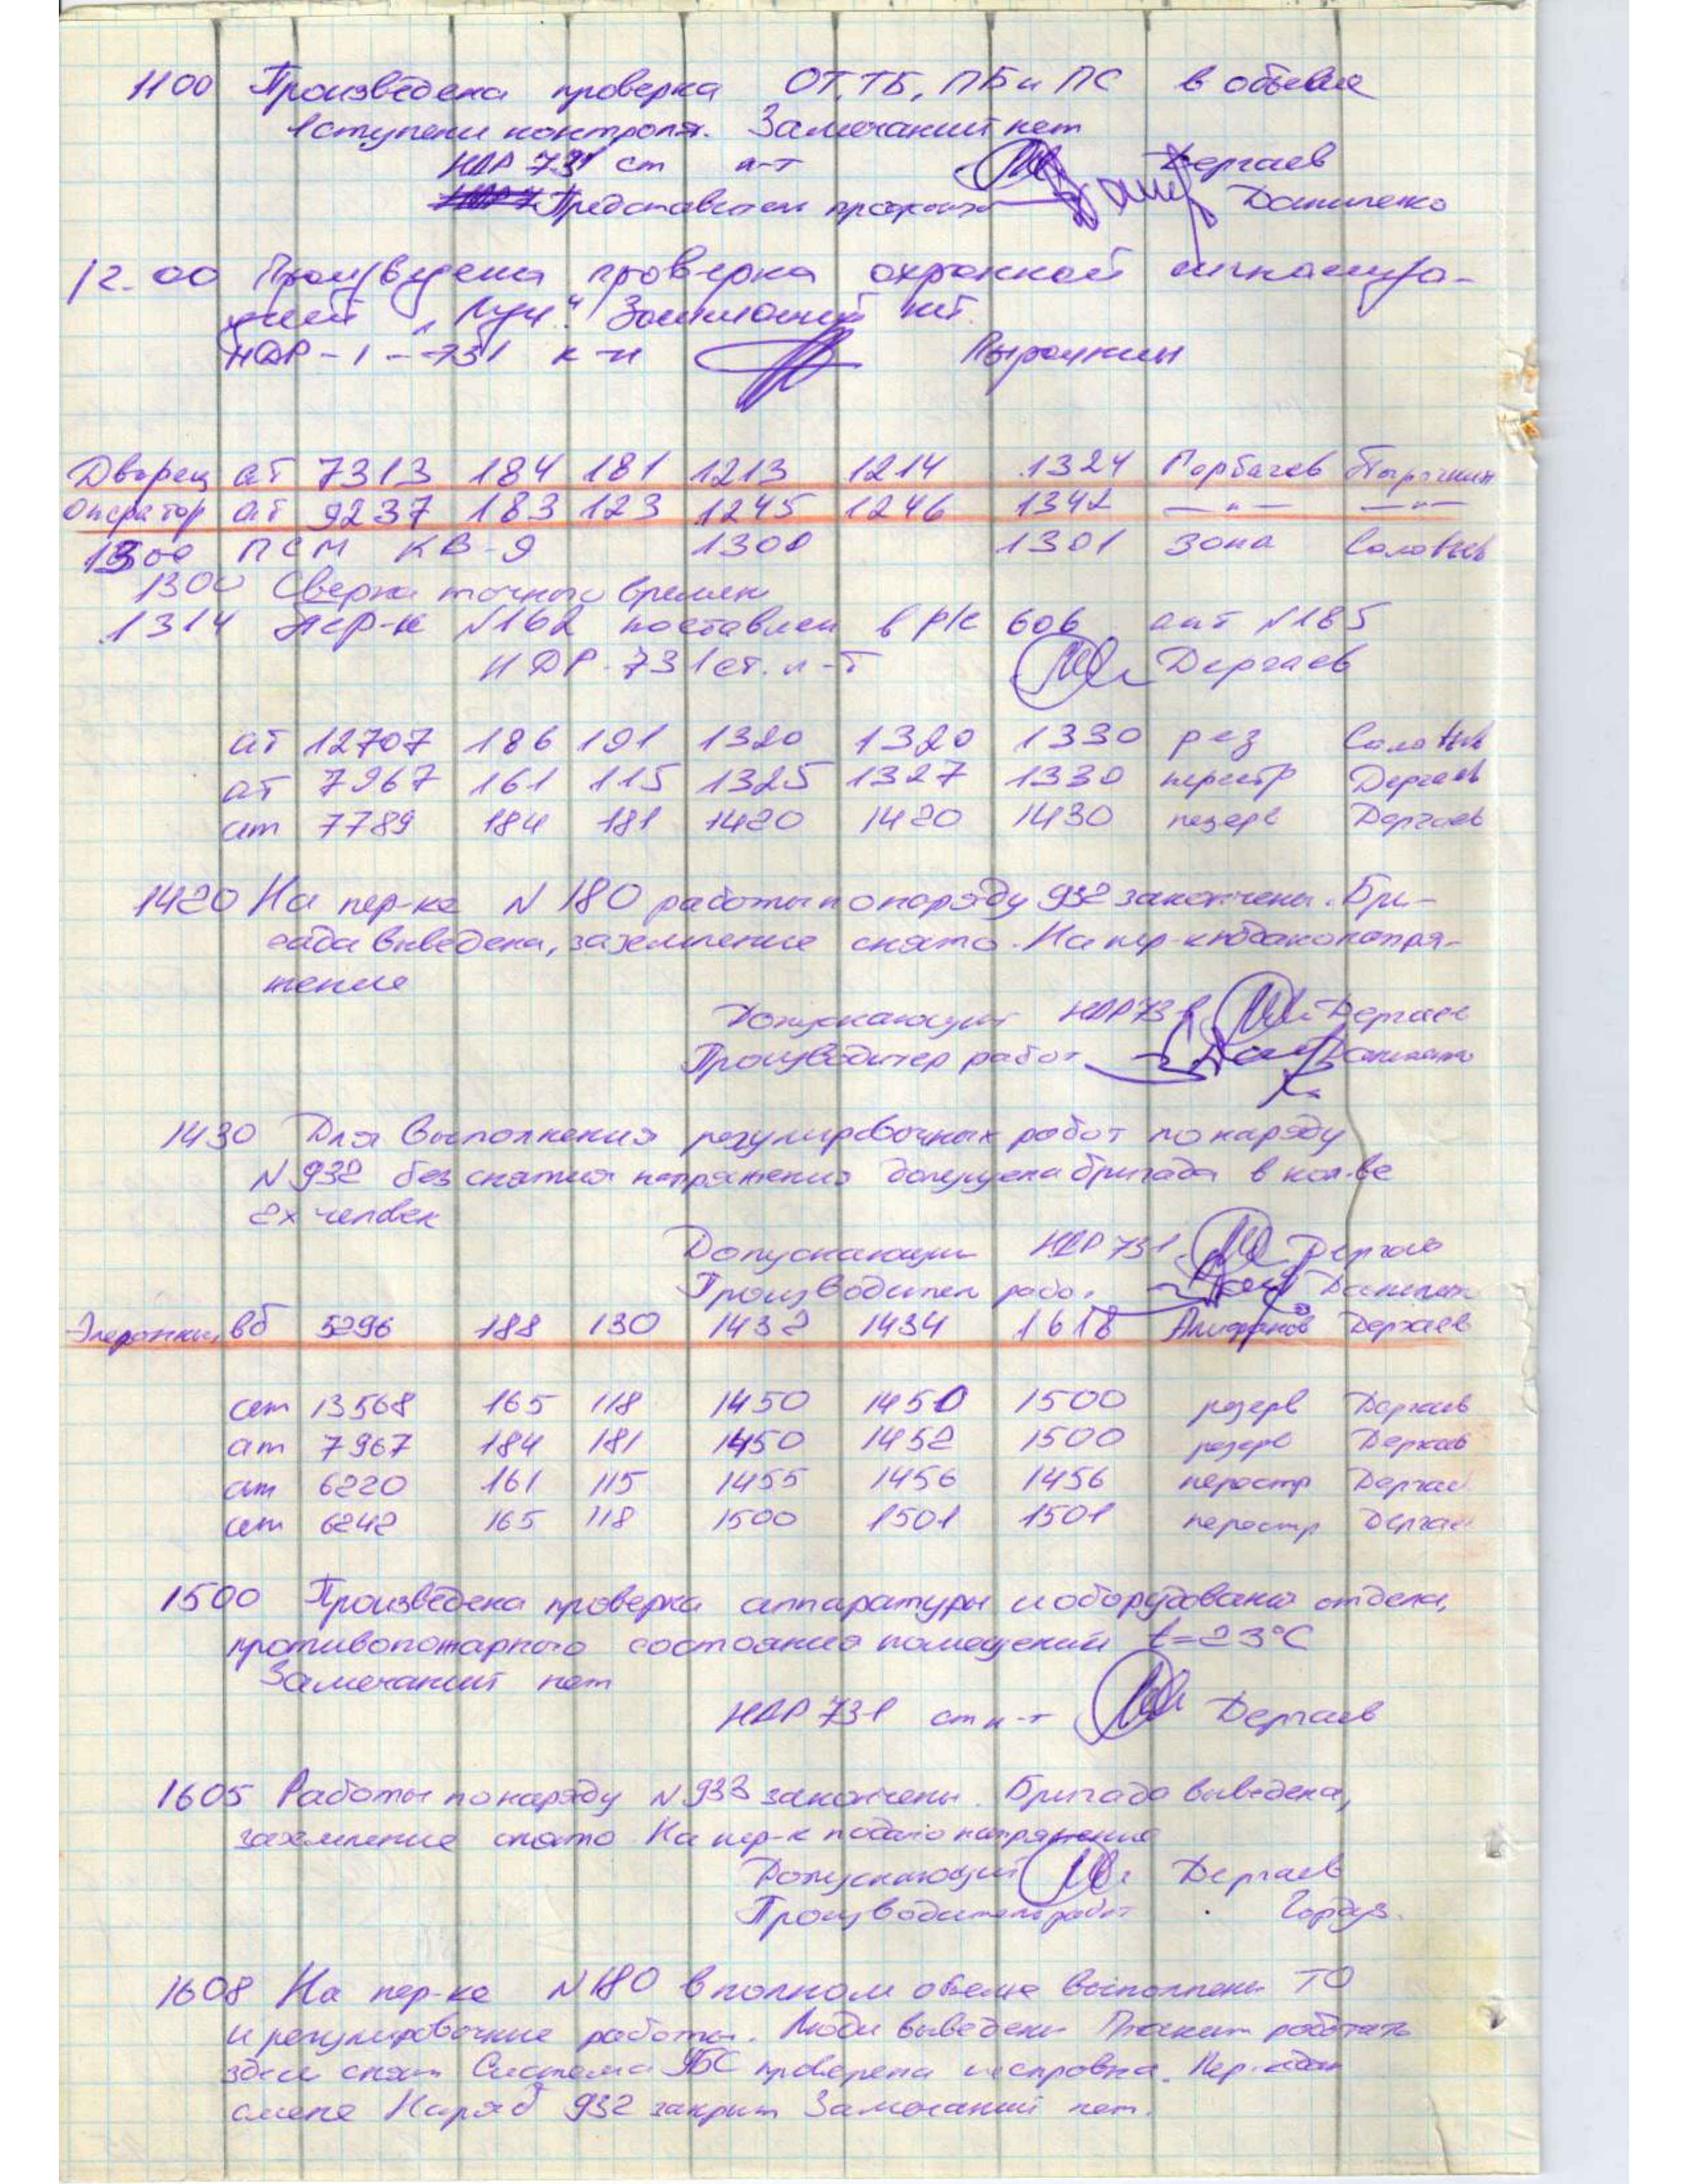 1100 Произведена проверка ОТ, ТБ, ПБ и ПС в объеме
1 ступени контроля. Замечаний нет
НДР 731 ст л-т Дергаев
Представители Даниленко
12.00 Произведена проверка охранной сигнализа-
цией „Луч". Замечаний нет.
НДР-1-731 к-н Пырочкин
Дворец ат 7313 184 181 1213 1214 1324 Горбачев Пырочкин
Оператор ат 9237 183 123 1245 1246 1342 —"— —"—
1300 ПСМ КВ-9 1300 1301 Зона Соловьев
1300 Сверка точного времени
1314 Пер-к N162 поставлен в р/с 606 ант N185
НДР-731 ст. л-т Дергаев
ат 12707 186 191 1320 1320 1330 рез Соловьев
ат 7967 161 115 1325 1327 1330 перестр Дергаев
ат 7789 184 181 1420 1420 1430 резерв Дергаев
1420 На пер-ке N 180 работы по наряду 932 закончены. Бри-
гада выведена, заземление снято. На пер-к подано напря-
жение
Допускающий НДР 731 Дергаев
Производитель работ Даниленко
1430 Для выполнения регулировочных работ по наряду
N 932 без снятия напряжения допущена бригада в кол-ве
2х человек
Допускающий НДР 731 Дергаев
Производитель работ Даниленко
вб 5296 188 130 1432 1434 1618 Алифанов Дергаев
ат 13568 165 118 1450 1450 1500 резерв Дергаев
ат 7967 184 181 1450 1452 1500 резерв Дергаев
ат 6220 161 115 1455 1456 1456 перестр Дергаев
ат 6242 165 118 1500 1501 1501 перестр Дергаев
1500 Произведена проверка аппаратуры и оборудования отдела,
противопожарного состояния помещений t=23°C
Замечаний нет
НДР 731 ст л-т Дергаев
1605 Работы по наряду N 933 закончены. Бригада выведена,
заземление снято. На пер-к подано напряжение
Допускающий Дергаев
Производитель работ
1608 На пер-ке N180 в полном объеме выполнены ТО
и регулировочные работы. Люди выведены. Плакат работать
здесь снят. Система УБС проверена исправна. Пер-к сдан
смене. Наряд 932 закрыт. Замечаний нет.